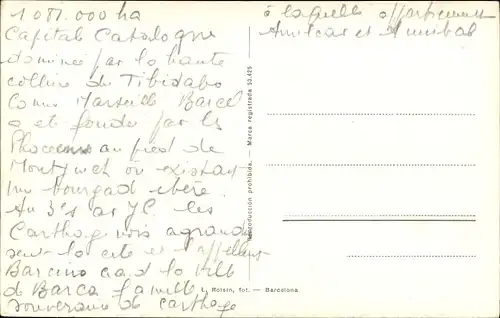 1 081.000 ha
Capitale Catalogne
dominée par la haute
colline du Tibidabo
Comme Marseille Barcel
o et fondée par les
Phoceens au pied de
Montjuich où existait
un bourgad ibère
Au 3e s av J C les
Carthaginois agrandis
sent la cite et l'appellent
Barcino c a d la ville
de Barca famille
souveraine de Carthage
à laquelle appartiennent
Amilcar et Annibal
Reproducción prohibida. — Marca registrada 50.425
L. Roisin, fot. — Barcelona